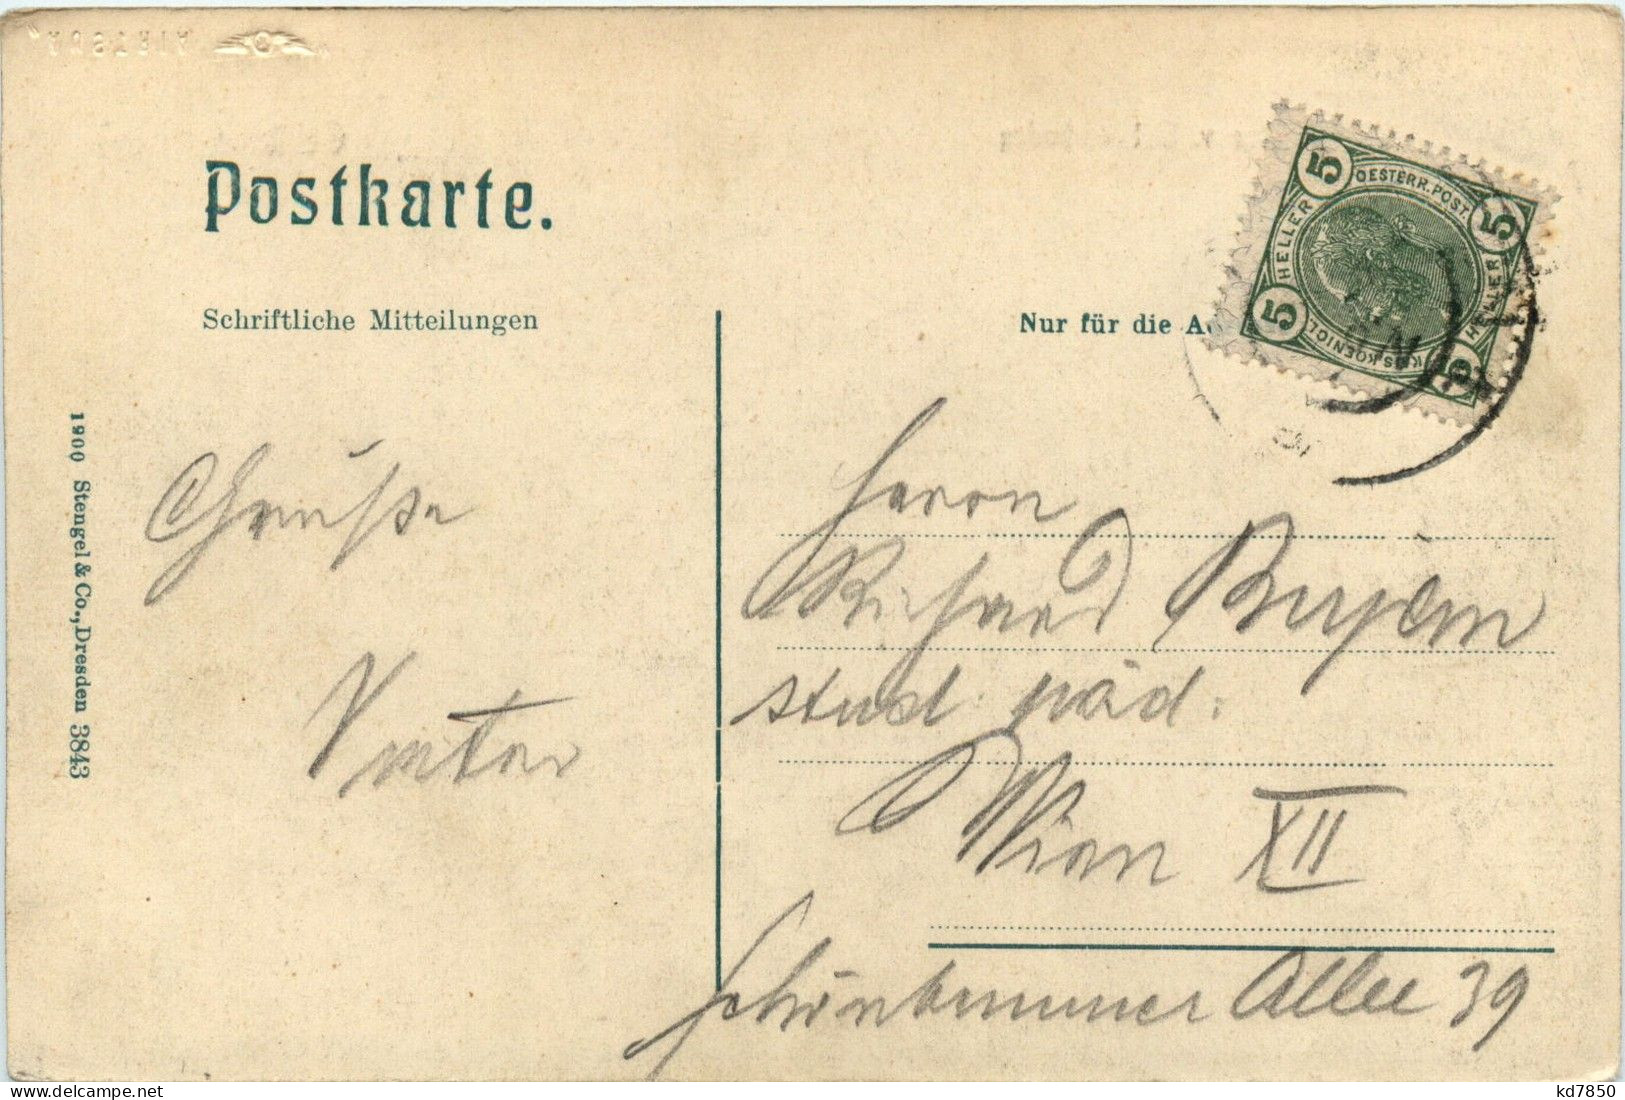 Postkarte.
Schriftliche Mitteilungen
Nur für die A
1900 Stengel & Co., Dresden 3843
5 OESTERR. POST. 5
HELLER HELLER
5 KAIS. KOENIGL. 5
Grüße
Vater
Herrn
Richard
stud. päd.
Wien XII
Schönbrunner Allee 39
delcampe.net
kd7850